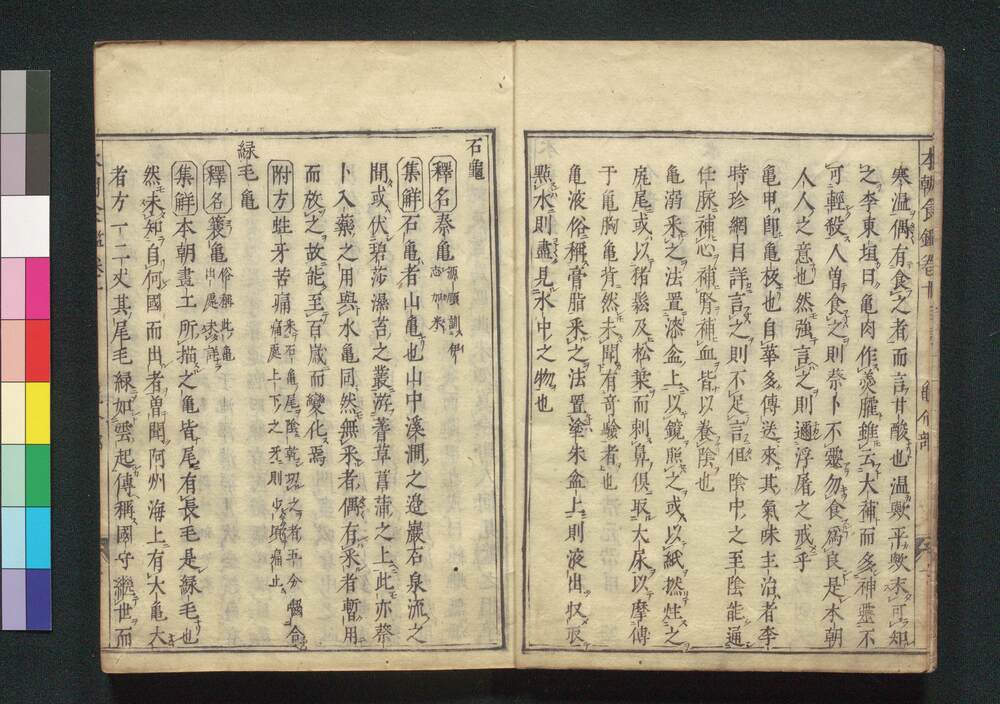 寒温偶有食之者而言甘酸也温歟平歟未可知
之李東垣曰亀肉作羮臛雖云大補而多神靈不
可輕殺人曽食之則蔡卜不靈勿食爲良是本朝
人人之意也然強言之則邇浮屠之戒乎
亀甲即亀板也自華多傳送來其氣味主治者李
時珍網目詳言之則不足言但陰中之至陰能通
任脉補心補腎補血皆以養陰也
亀溺采之法置漆盆上以鏡照之或以紙撚炷之
尾或以猪鬃及松葉而刺鼻倶取大尿以摩傳
于亀胸亀背然未聞有竒驗者也
亀液俗稱膏脂采之法置塗朱盆上則液出収
點水則盡見水中之物也
石龜
釋名秦亀源順訓伊志加米
集解石亀者山亀也山中溪澗之邉巖石泉流之
間或伏碧莎濕苔之叢游蓍草菖蒲之上此亦蔡
卜入藥之用與水亀同然無采者偶有采者暫用
而放之故能至百歳而變化焉
附方蛀牙苦痛
緑毛亀
釋名蓑亀俗稱此亀出處未詳
集解本朝畫工所描之亀皆尾有長毛是緑毛也
然未知自何國而出者曽聞阿州海上有大亀大
者方一二丈其尾毛緑如雲起傳稱國守繼世而